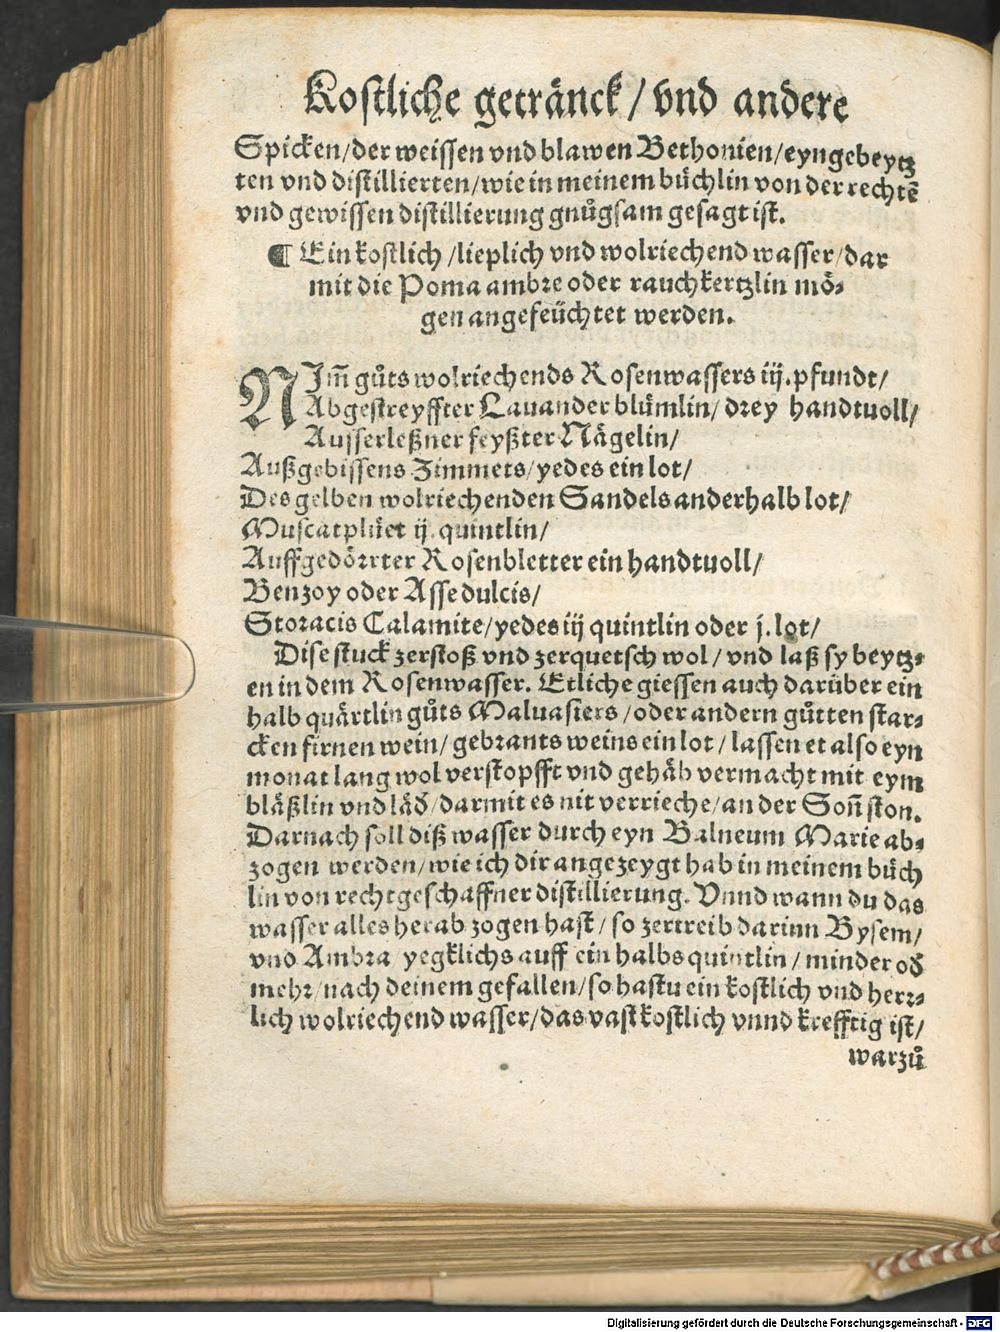 Kostliche getränck / vnd andere
Spicken / der weissen vnd blawen Bethonien / eyngebeytz
ten vnd distillierten / wie in meinem büchlin von der rechtē
vnd gewissen distillierung gnůgsam gesagt ist.
¶ Ein kostlich / lieplich vnd wolriechend wasser / dar
mit die Poma ambre oder rauchkertzlin mö⸗
gen angefeüchtet werden.
NJm̃ gůts wolriechends Rosenwassers iij. pfundt /
Abgestreyffter Lauander blümlin / drey handtuoll /
Ausserleßner feyßter Nägelin /
Außgebissens Zimmets / yedes ein lot /
Des gelben wolriechenden Sandels anderhalb lot /
Muscatplüet ij. quintlin /
Auffgedörrter Rosenbletter ein handtuoll /
Benzoy oder Asse dulcis /
Storacis Calamite / yedes iij quintlin oder j. lot /
Dise stuck zerstoß vnd zerquetsch wol / vnd laß sy beytz⸗
en in dem Rosenwasser. Etliche giessen auch darüber ein
halb quärtlin gůts Maluasiers / oder andern gůtten star⸗
cken firnen wein / gebrants weins ein lot / lassen et also eyn
monat lang wol verstopfft vnd gehäb vermacht mit eym
bläßlin vnd läd / darmit es nit verrieche / an der Son̄ ston.
Darnach soll diß wasser durch eyn Balneum Marie ab⸗
zogen werden / wie ich dir angezeygt hab in meinem büch
lin von rechtgeschaffner distillierung. Vnnd wann du das
wasser alles herab zogen hast / so zertreib darinn Bysem /
vnd Ambra / yegklichs auff ein halbs quintlin / minder od
mehr / nach deinem gefallen / so hastu ein kostlich vnd herr⸗
lich wolriechend wasser / das vast kostlich vnnd krefftig ist /
warzů
Digitalisierung gefördert durch die Deutsche Forschungsgemeinschaft - DFG